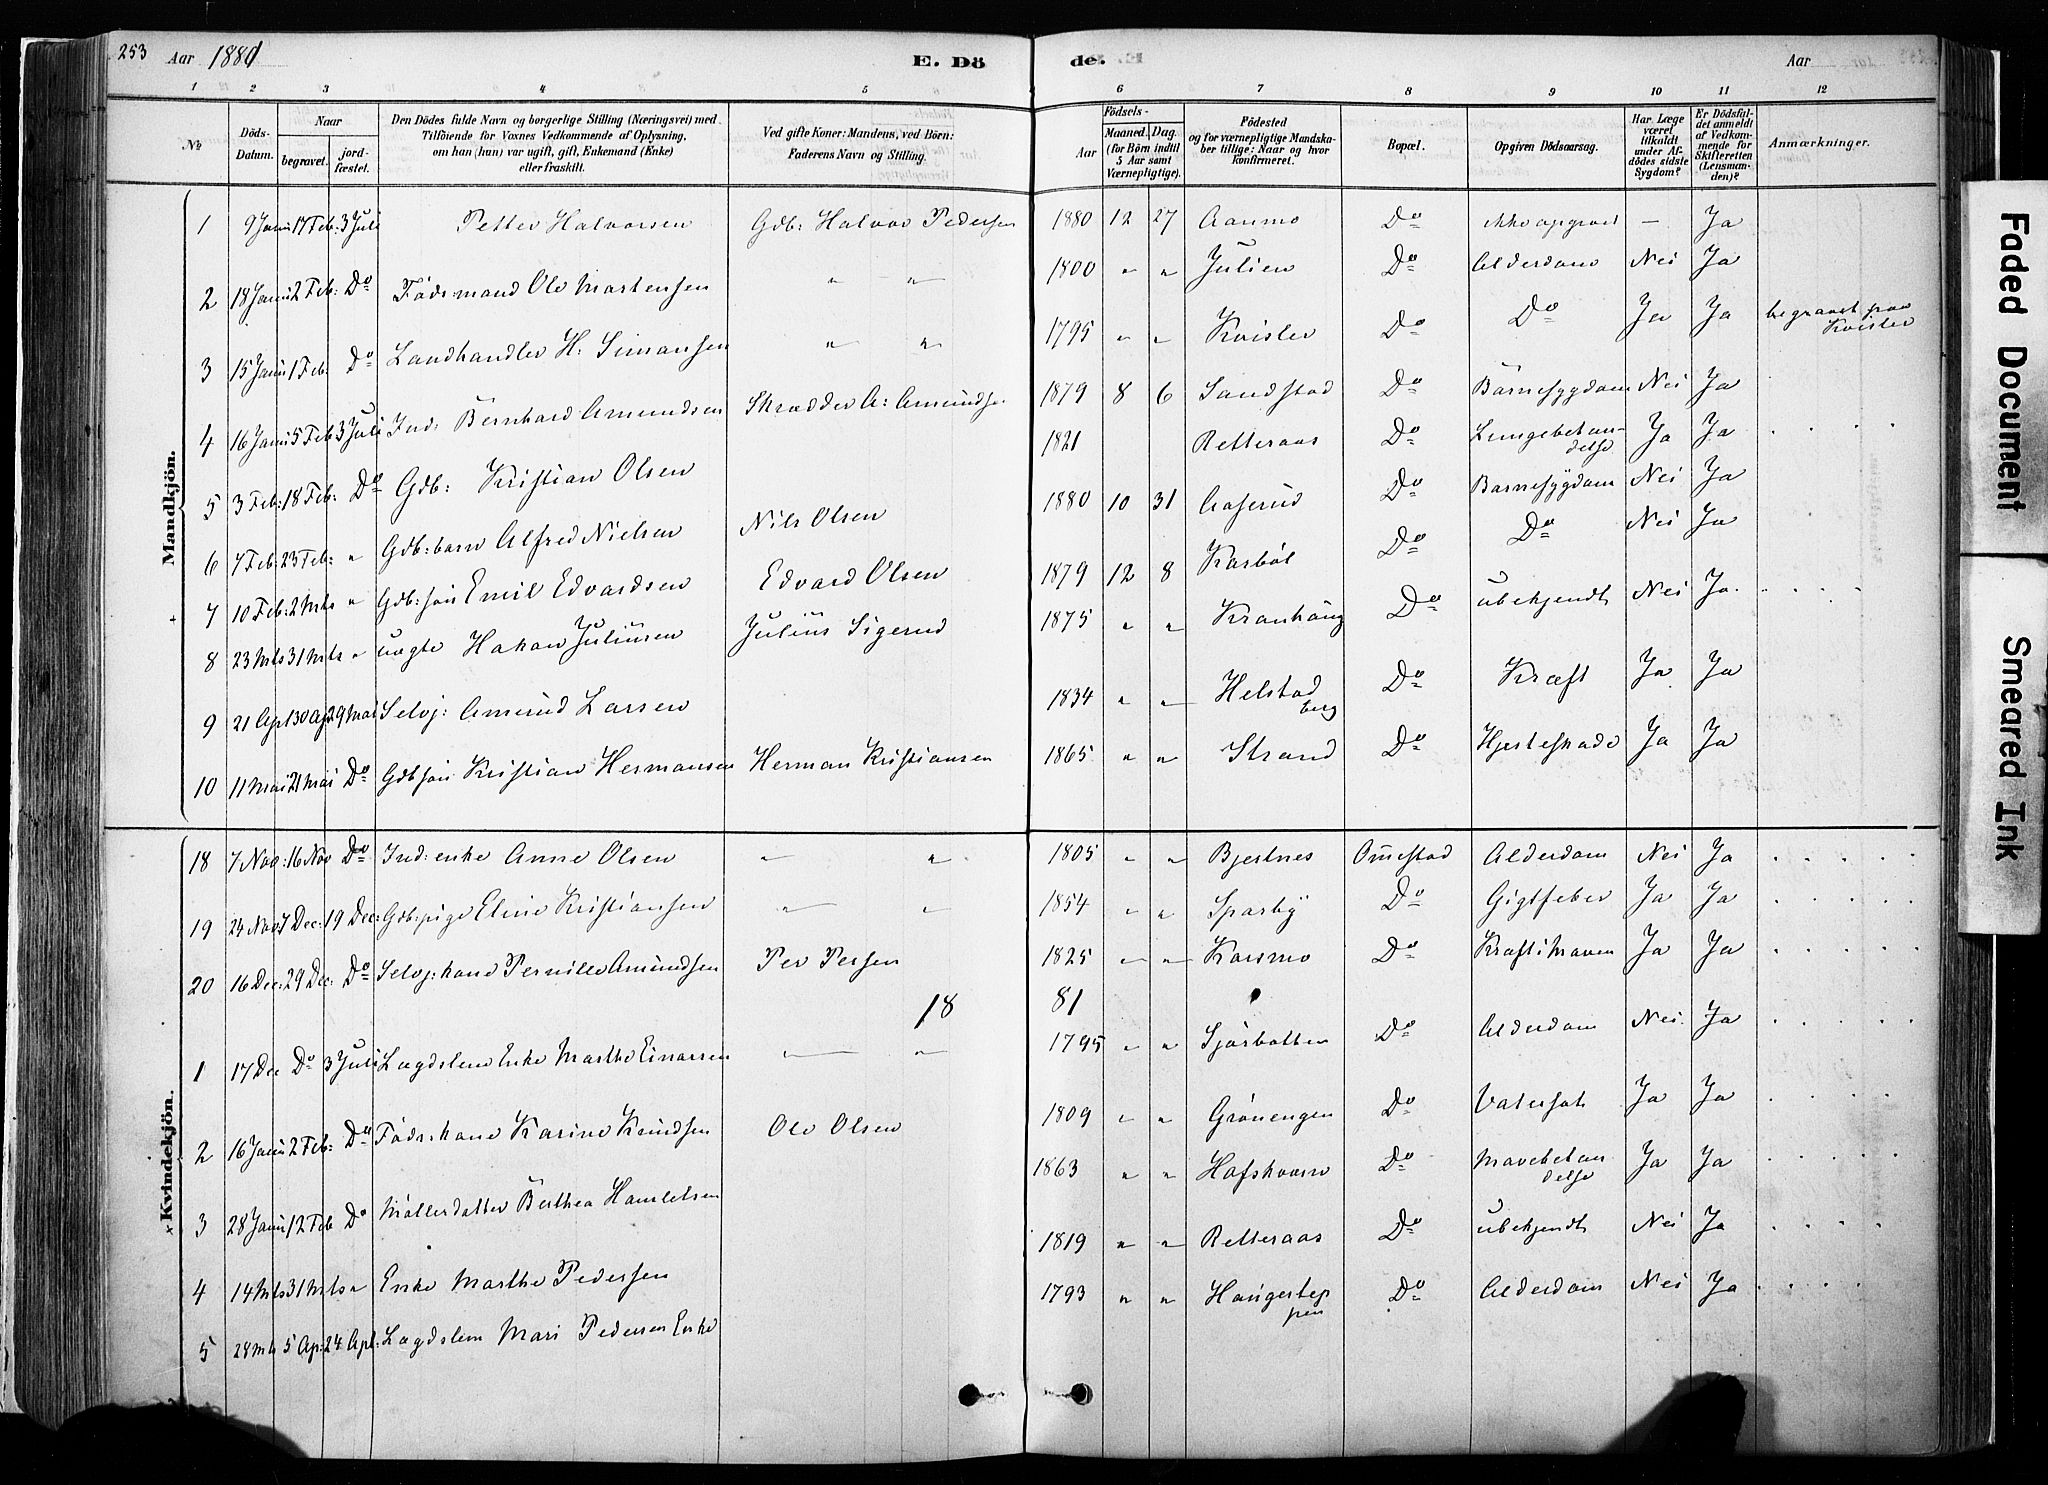 253 Aar 1881 E. Dö de. Aar
1 2 3 4 5 6 7 8 9 10 11 12
№
Döds-Datum.
Naar
begravet.
jord-fæstet.
Den Dödes fulde Navn og borgerlige Stilling (Næringsvei) med
Tilföiende for Voxnes Vedkommende af Oplysning,
om han (hun) var ugift, gift, Enkemand (Enke)
eller fraskilt.
Ved gifte Koner: Mandens, ved Börn:
Faderens Navn og Stilling.
Födsels-
Aar
Maaned. Dag.
(for Börn indtil
5 Aar samt
Værnepligtige).
Födested
og for værnepligtige Mandska-
ber tillige: Naar og hvor
konfirmeret.
Bopæl.
Opgiven Dödsaarsag.
Har Læge
været
tilkaldt
under Af-
dödes sidste
Sygdom?
Er Dödsfal-
det anmeldt
af Vedkom-
mende for
Skifteretten
(Lensman-
den)?
Anmærkninger.
Mandkjön.
1 9 Janu 17 Feb: 3 Juli Petter Halvorsen Gdb: Halvor Pedersen 1880 12 27 Aanmo Do ikke opgivet — Ja
2 18 Janu 2 Feb: Do Födsmand Ole Martensen " " 1800 " " Julien Do Alderdom Nei Ja
3 15 Janu 1 Feb: Do Landhandler H: Simansen " " 1795 " " Kvisler Do Do Ja Ja begravet paa
Kvisler
4 16 Janu 5 Feb 3 Juli Ind: Bernhard Amundsen Skrædder A: Amundsen 1879 8 6 Sandstad Do Barnesygdom Nei Ja
5 3 Feb: 18 Feb: Do Gdb: Kristian Olsen 1821 Retteraas Do Lungebetæn-
delse Ja Ja
6 7 Feb: 23 Feb: " Gdb: barn Alfred Nielsen Nils Olsen 1880 10 31 Aaserud Do Barnesygdom Nei Ja
7 10 Feb: 2 Mts " Gdb: søn Emil Edvardsen Edvard Olsen 1879 12 8 Karböl Do Do Nei Ja
8 23 Mts 31 Mts " uægte Hakon Juliusen Julius Sigerud 1875 " " Kranhaug Do ubekjendt Nei Ja
9 21 Apl 30 Ap 29 Mai Selvj: Amund Larsen 1834 " " Helstad
berg Do Kræft Ja Ja
10 11 Mai 21 Mai Do Gdb søn Kristian Hermansen Herman Kristiansen 1865 " " Strand Do Hjerteskade Ja Ja
Kvindekjön.
18 7 Nov: 16 Nov Do Ind: enke Anne Olsen " " 1805 " " Bjertnes Omestad Alderdom Nei Ja
19 24 Nov 7 Dec: 19 Dec: Gdb: pige Eline Kristiansen " " 1854 " " Sparby Do Gigtfeber Ja Ja
20 16 Dec: 29 Dec: Do Selvj: kone Pernille Amundsen Per Persen 1825 " " Karsmo Do Kræft i Maven Ja Ja
18 81
1 17 Dec Do 3 Juli Lægdslem Enke Marthe Einarsen " " 1795 " " Sjørbotten Do Alderdom Nei Ja
2 16 Janu 2 Feb: Do Føds: kone Karine Knudsen Ole Olsen 1809 " " Grönengen Do Vatersot Ja Ja
3 28 Janu 12 Feb Do Møllerdatter Berthea Hamletsen 1863 " " Hofskvern Do Mavebetæn
delse Ja Ja
4 14 Mts 31 Mts " Enke Marthe Pedersen 1819 " " Retteraas Do ubekjendt Nei Ja
5 28 Mts 5 Ap: 24 Apl: Lægdslem Mari Pedersen Enke 1793 " " Haugertep
pen Do Alderdom Nei Ja
Faded Document
Smeared Ink